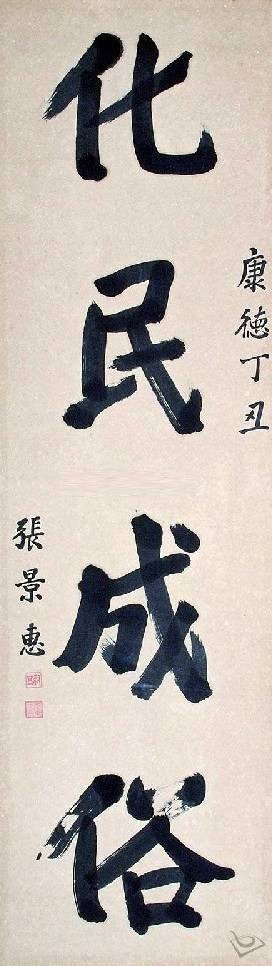 康徳丁丑
化民成俗
張景惠